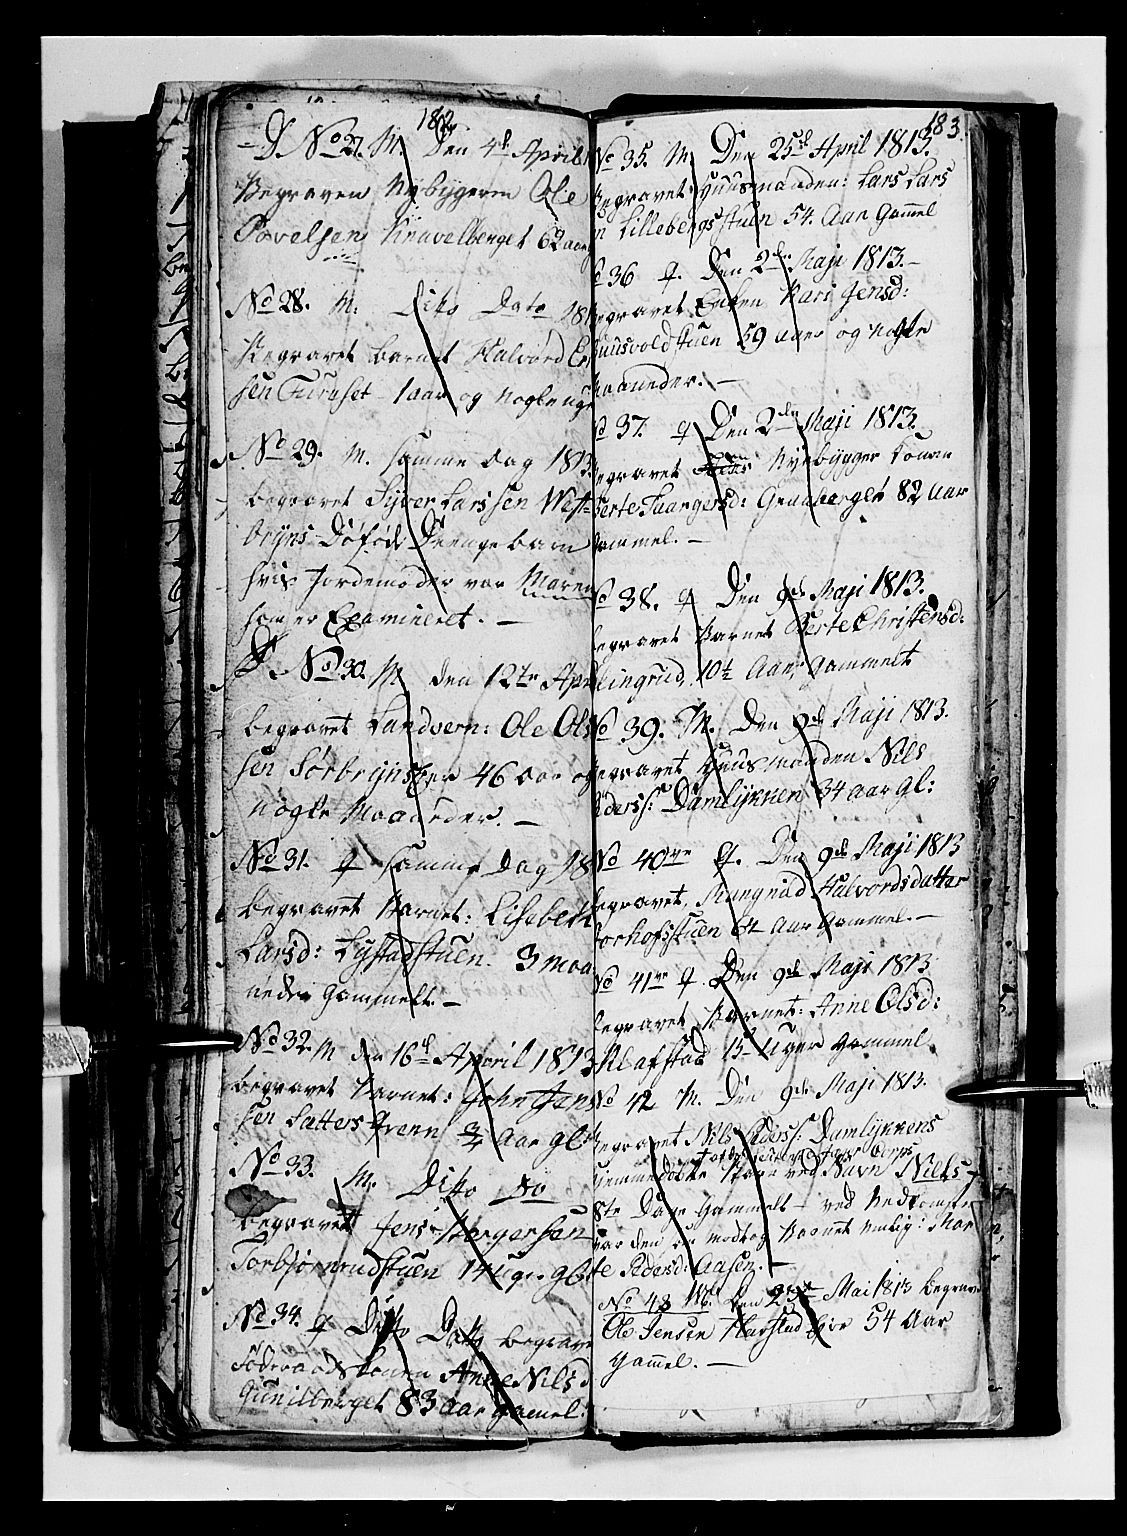 182
No 27. M. Den 4de April
Begraven Nybyggeren Ole
Povelsen Knavelberget 62 aar
No 28. M. Dito Dato 18
Begravet barnet Halvord
sen Furuset 1 aar og nogle uger
No 29. M. samme dag 1813.
begravet Syver Larssen West-
bryns Døfød Drenge barn
hvis Jordemoder var Maren
som er Examineret. —
No 30. M. den 12te Apr
begravet Landvern: Ole Ols
sen Sørbryns 46 aar og
nogle Maaneder. —
No 31. q samme Dag 18
begravet Barnet: Lisebeth
Larsd: Lystadstuen. 3 maa
neder Gammelt. —
No 32. M den 16de April 1813
begravet barnet: John Jens
sen Satters 3/4 Aar gl:
No 33. M. Dito
begravet Jens Borgersen
Torbjørnrudstuen 14 uger gl:
No 34. q Ditto Datto begrave
Føderaads konen Anne Nilsd
Gunilberget 83 aar gamel.
183.
No 35. M. Den 25de April 1813.
Begravet Huusmanden: Lars Lars
n Lillebergsstuen 54. Aar Gammel
No 36 q. Den 2den Maji 1813.—
egravet Enken Kari Jensd:
stuen 59 aar og nogle
Maaneder. —
No 37. q Den 2den Maji 1813.
egravet Nyebygger konen
Berte Gunberget 82 Aar
Gammel. —
No 38. q Den 9de Maji 1813.
egravet Barnet Berte Christensd:
Klingrud, 10½ Aar, Gammelt
No 39. M. Den 9de Maji 1813.
egravet Huusmanden Nils
Pederss: Damlykken 34 aar gl:
No 40 q. Den 9de Maji 1813
egravet, Rangnild Halvordsdatter
stuen 6½ Aar Gammel. —
No 41 q. Den 9de Maji 1813
egravet Barnet: Anne Olsd:
Alafstad 15 Uger Gammel.
No 42 M. Den 9de Maji 1813.
Begravet Nils Pederss: Damlykkens
Hjemmedøbte Barn ved Navn Niels
8te Dage Gammelt — ved Nedkomsten
var den der modtog Barnet nemlig: Mar
te Pedersd: Aasen. —
No 43 M. Den 23de Mai 1813 begrav
Ole Jensen Harstad 54 Aar
Gamel. —